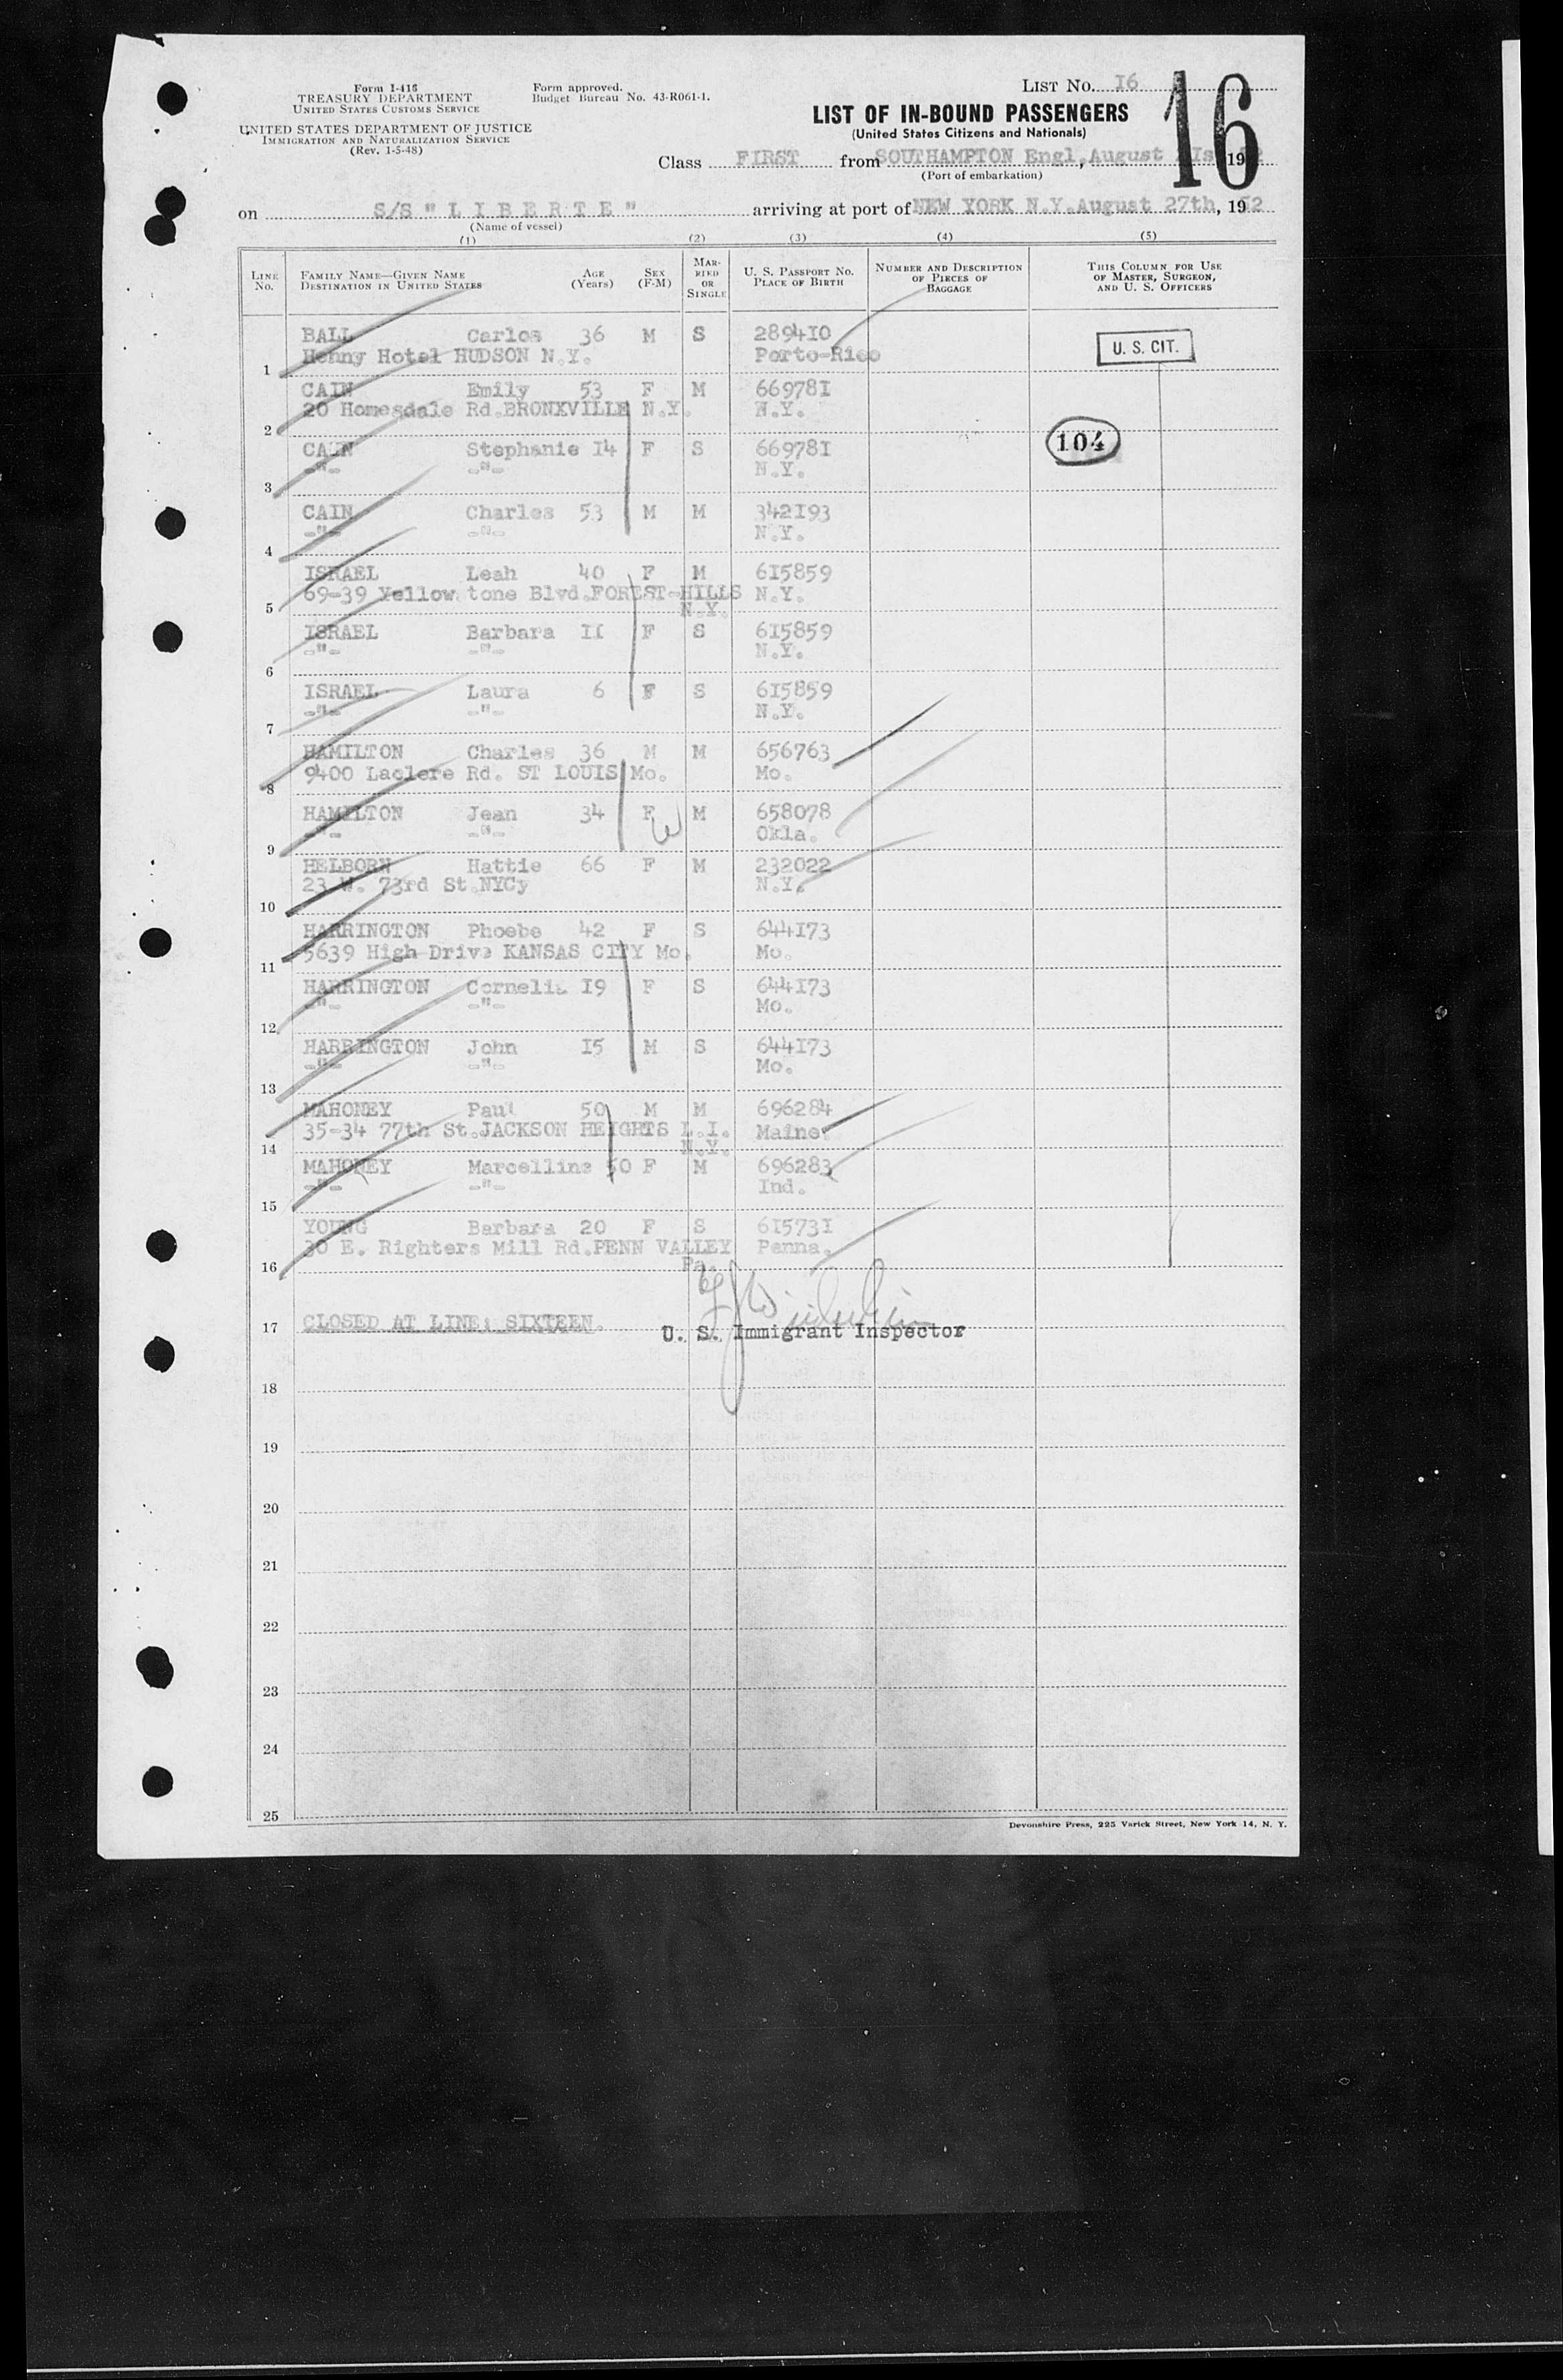 Form I-416
TREASURY DEPARTMENT
UNITED STATES CUSTOMS SERVICE
UNITED STATES DEPARTMENT OF JUSTICE
IMMIGRATION AND NATURALIZATION SERVICE
(Rev. 1-5-48)
Form approved.
Budget Bureau No. 43-R061-1.
LIST No. I6
16
LIST OF IN-BOUND PASSENGERS
(United States Citizens and Nationals)
Class FIRST from SOUTHAMPTON Engl, August 19
(Port of embarkation)
on S/S " L I B E R T E " arriving at port of NEW YORK N.Y. August 27th, 19
(Name of vessel)
(1) (2) (3) (4) (5)
LINE No. FAMILY NAME—GIVEN NAME DESTINATION IN UNITED STATES AGE (Years) SEX (F-M) MARRIED OR SINGLE U. S. PASSPORT NO. PLACE OF BIRTH NUMBER AND DESCRIPTION OF PIECES OF BAGGAGE THIS COLUMN FOR USE OF MASTER, SURGEON, AND U. S. OFFICERS
BALL Carlos 36 M S 2894I0 U. S. CIT.
1 Henny Hotel HUDSON N.Y. Porto-Rico
CAIN Emily 53 F M 66978I
2 20 Homesdale Rd.BRONXVILLE N.Y. N.Y.
CAIN Stephanie I4 F S 66978I 104
3 -"- -"- N.Y.
CAIN Charles 53 M M 342I93
4 -"- -"- N.Y.
ISRAEL Leah 40 F M 6I5859
5 69-39 Yellow tone Blvd.FOREST-HILLS N.Y. N.Y.
ISRAEL Barbara II F S 6I5859
6 -"- -"- N.Y.
ISRAEL Laura 6 F S 6I5859
7 -"- -"- N.Y.
HAMILTON Charles 36 M M 656763
8 9400 Laclere Rd. ST LOUIS Mo. Mo.
HAMILTON Jean 34 F M 658078
9 -"- -"- Okla.
HELBORN Hattie 66 F M 232022
10 23 W. 73rd St.NYCy N.Y.
HARRINGTON Phoebe 42 F S 644I73
11 5639 High Drive KANSAS CITY Mo. Mo.
HARRINGTON Cornelia I9 F S 644I73
12 -"- -"- Mo.
HARRINGTON John I5 M S 644I73
13 -"- -"- Mo.
MAHONEY Paul 50 M M 696284
14 35-34 77th St.JACKSON HEIGHTS L.I. N.Y. Maine
MAHONEY Marcelline 50 F M 696283
15 -"- -"- Ind.
YOUNG Barbara 20 F S 6I573I
16 30 E. Righters Mill Rd.PENN VALLEY Pa. Penna.
17 CLOSED AT LINE: SIXTEEN. U. S. Immigrant Inspector
18
19
20
21
22
23
24
25
Devonshire Press, 225 Varick Street, New York 14, N. Y.